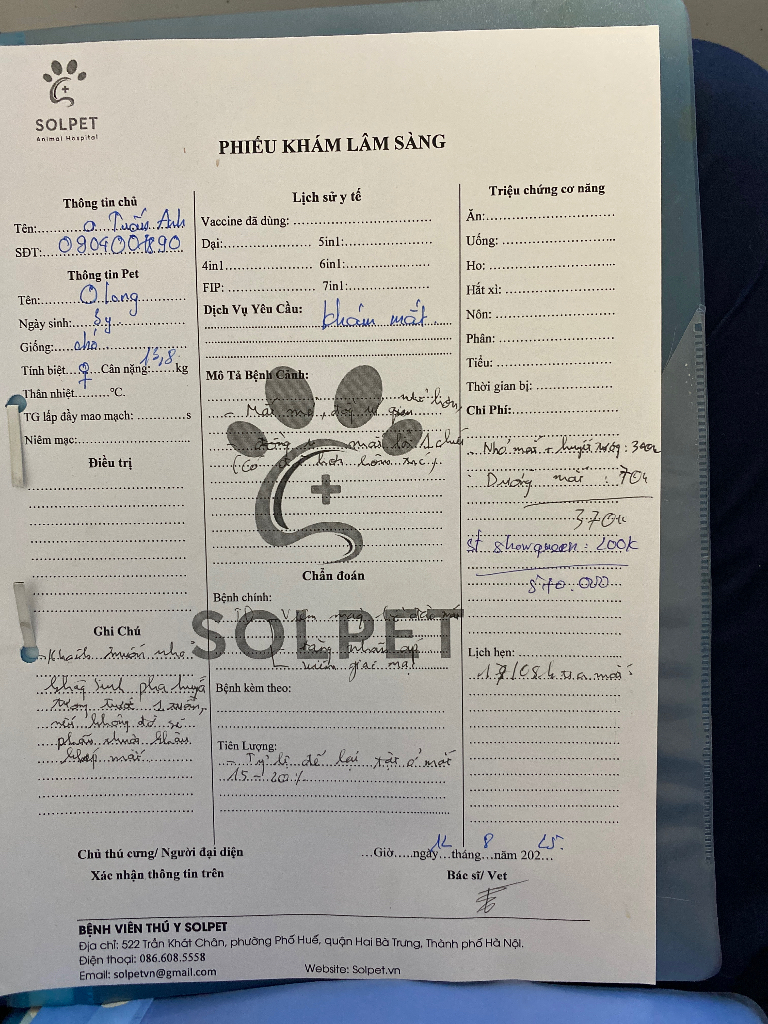 SOLPET
Animal Hospital
PHIẾU KHÁM LÂM SÀNG
Thông tin chủ
Tên: a Tuấn Anh
SĐT:
Thông tin Pet
Tên: Olong
Ngày sinh: 8y
Giống: chó
Tính biệt ♀ Cân nặng: 13,8 kg
Thân nhiệt.........°C.
TG lấp đầy mao mạch: ............s
Niêm mạc:
Điều trị
Ghi Chú
- Khách muốn nhỏ
kháng sinh pha huyết
tương trước 1 tuần,
nếu không đỡ sẽ
phẫu thuật khâu
khép mắt
Lịch sử y tế
Vaccine đã dùng:
Dại: 5in1:
4in1 6in1:
FIP: 7in1:
Dịch Vụ Yêu Cầu: khám mắt
Mô Tả Bệnh Cảnh:
- Mắt
nhỏ hơn
mắt 1
SOLPET
Chẩn đoán
Bệnh chính:
Viêm
viêm giác mạc
Bệnh kèm theo:
Tiên Lượng:
- Tỷ lệ để lại ở mắt
15 - 20%
Triệu chứng cơ năng
Ăn:
Uống:
Ho:
Hắt xì:
Nôn:
Phân:
Tiểu:
Thời gian bị:
Chi Phí:
- Nhỏ mắt + huyết tương: 300k
- Dưỡng mắt: 70k
370k
sf showqueen: 200k
570.000
Lịch hẹn:
Chủ thú cưng/ Người đại diện
Xác nhận thông tin trên
…Giờ…..ngày 12 tháng 8 năm 2025
Bác sĩ/ Vet
BỆNH VIÊN THÚ Y SOLPET
Địa chỉ: 522 Trần Khát Chân, phường Phố Huế, quận Hai Bà Trưng, Thành phố Hà Nội.
Điện thoại: 086.608.5558
Email: solpetvn@gmail.com Website: Solpet.vn